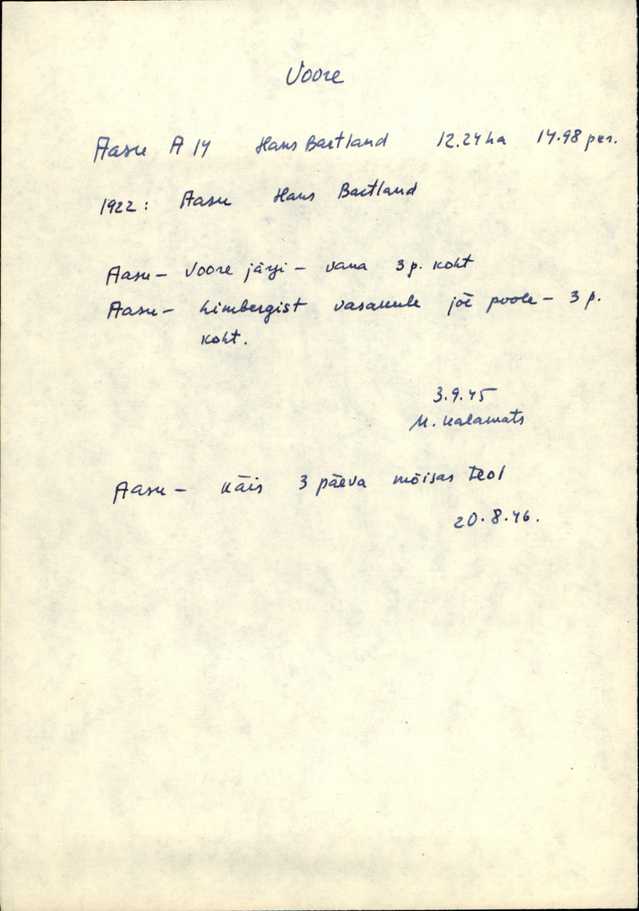 Voore
Aasu A 14 Hans Bartland 12.24 ha 14.98 per.
1922: Aasu Hans Bartland
Aasu – Voore järgi – vana 3 p. koht
Aasu – Limbergist vasakule jõe poole – 3 p.
koht.
3.9.45
M. Kalamats
Aasu – käis 3 päeva mõisas teol
20.8.46.